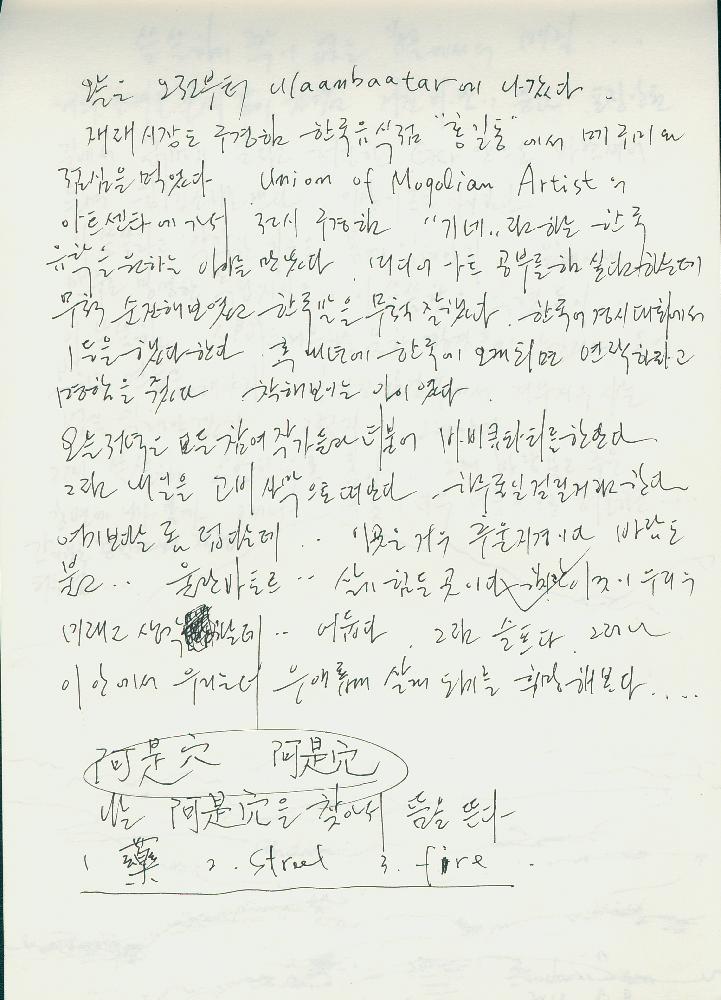 오늘은 오전부터 Ulaanbaatar에 나갔다.
재래시장도 구경함 한국음식점 "홍길동"에서
점심을 먹었다 Union of Mogolian Artist의
아트센타에 가서 전시 구경함 "기네..라고하는 한국
유학을 원하는 아이를 만났다. 미디어 아트 공부를 함 싶다고하는데
무척 순진해보였고 한국말을 무척 잘했다. 한국어경시대회에서
1등을 했다한다. 혹 내년에 한국에 오게되면 연락하라고
명함을 주었다 착해보이는 아이였다.
오늘저녁은 모든 참여작가들과 더불어 바비큐파티를한단다
그리고 내일은 고비사막으로 떠난다. 하루종일 걸릴거라 한다
여기 변살 덥다는데.. 이곳은 거의 추울지경이다 바람도
불고.. 울란바토르.. 살기 힘든 곳이다 이것이 우리의
미래고 생각 하는데.. 어둡다. 그리고 슬프다. 그러나
이 안에서 우리는 더 은애롭게 살게 되기를 희망해본다....
阿是穴 阿是穴
나는 阿是穴을 찾아서 뜸을 뜬다
1 藥 2. Street 3. fire.